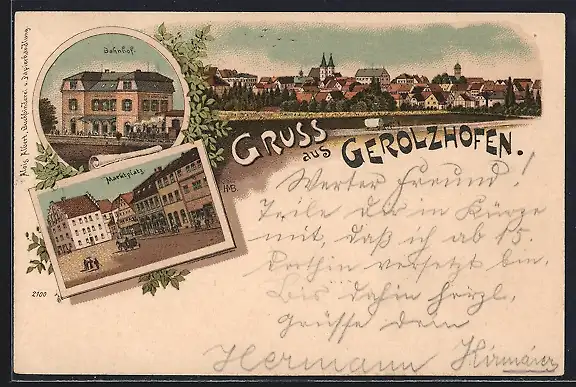 Bahnhof.
Marktplatz.
HB.
GRUSS
aus GEROLZHOFEN.
Werter Freund!
Teile dir in Kürze
mit, daß ich ab 15.
dorthin versetzt bin.
Bis dahin herzl.
Grüsse dein
Hermann Hirmaier
2100
Alois Albert, Buchbinderei u. Papierhandlung